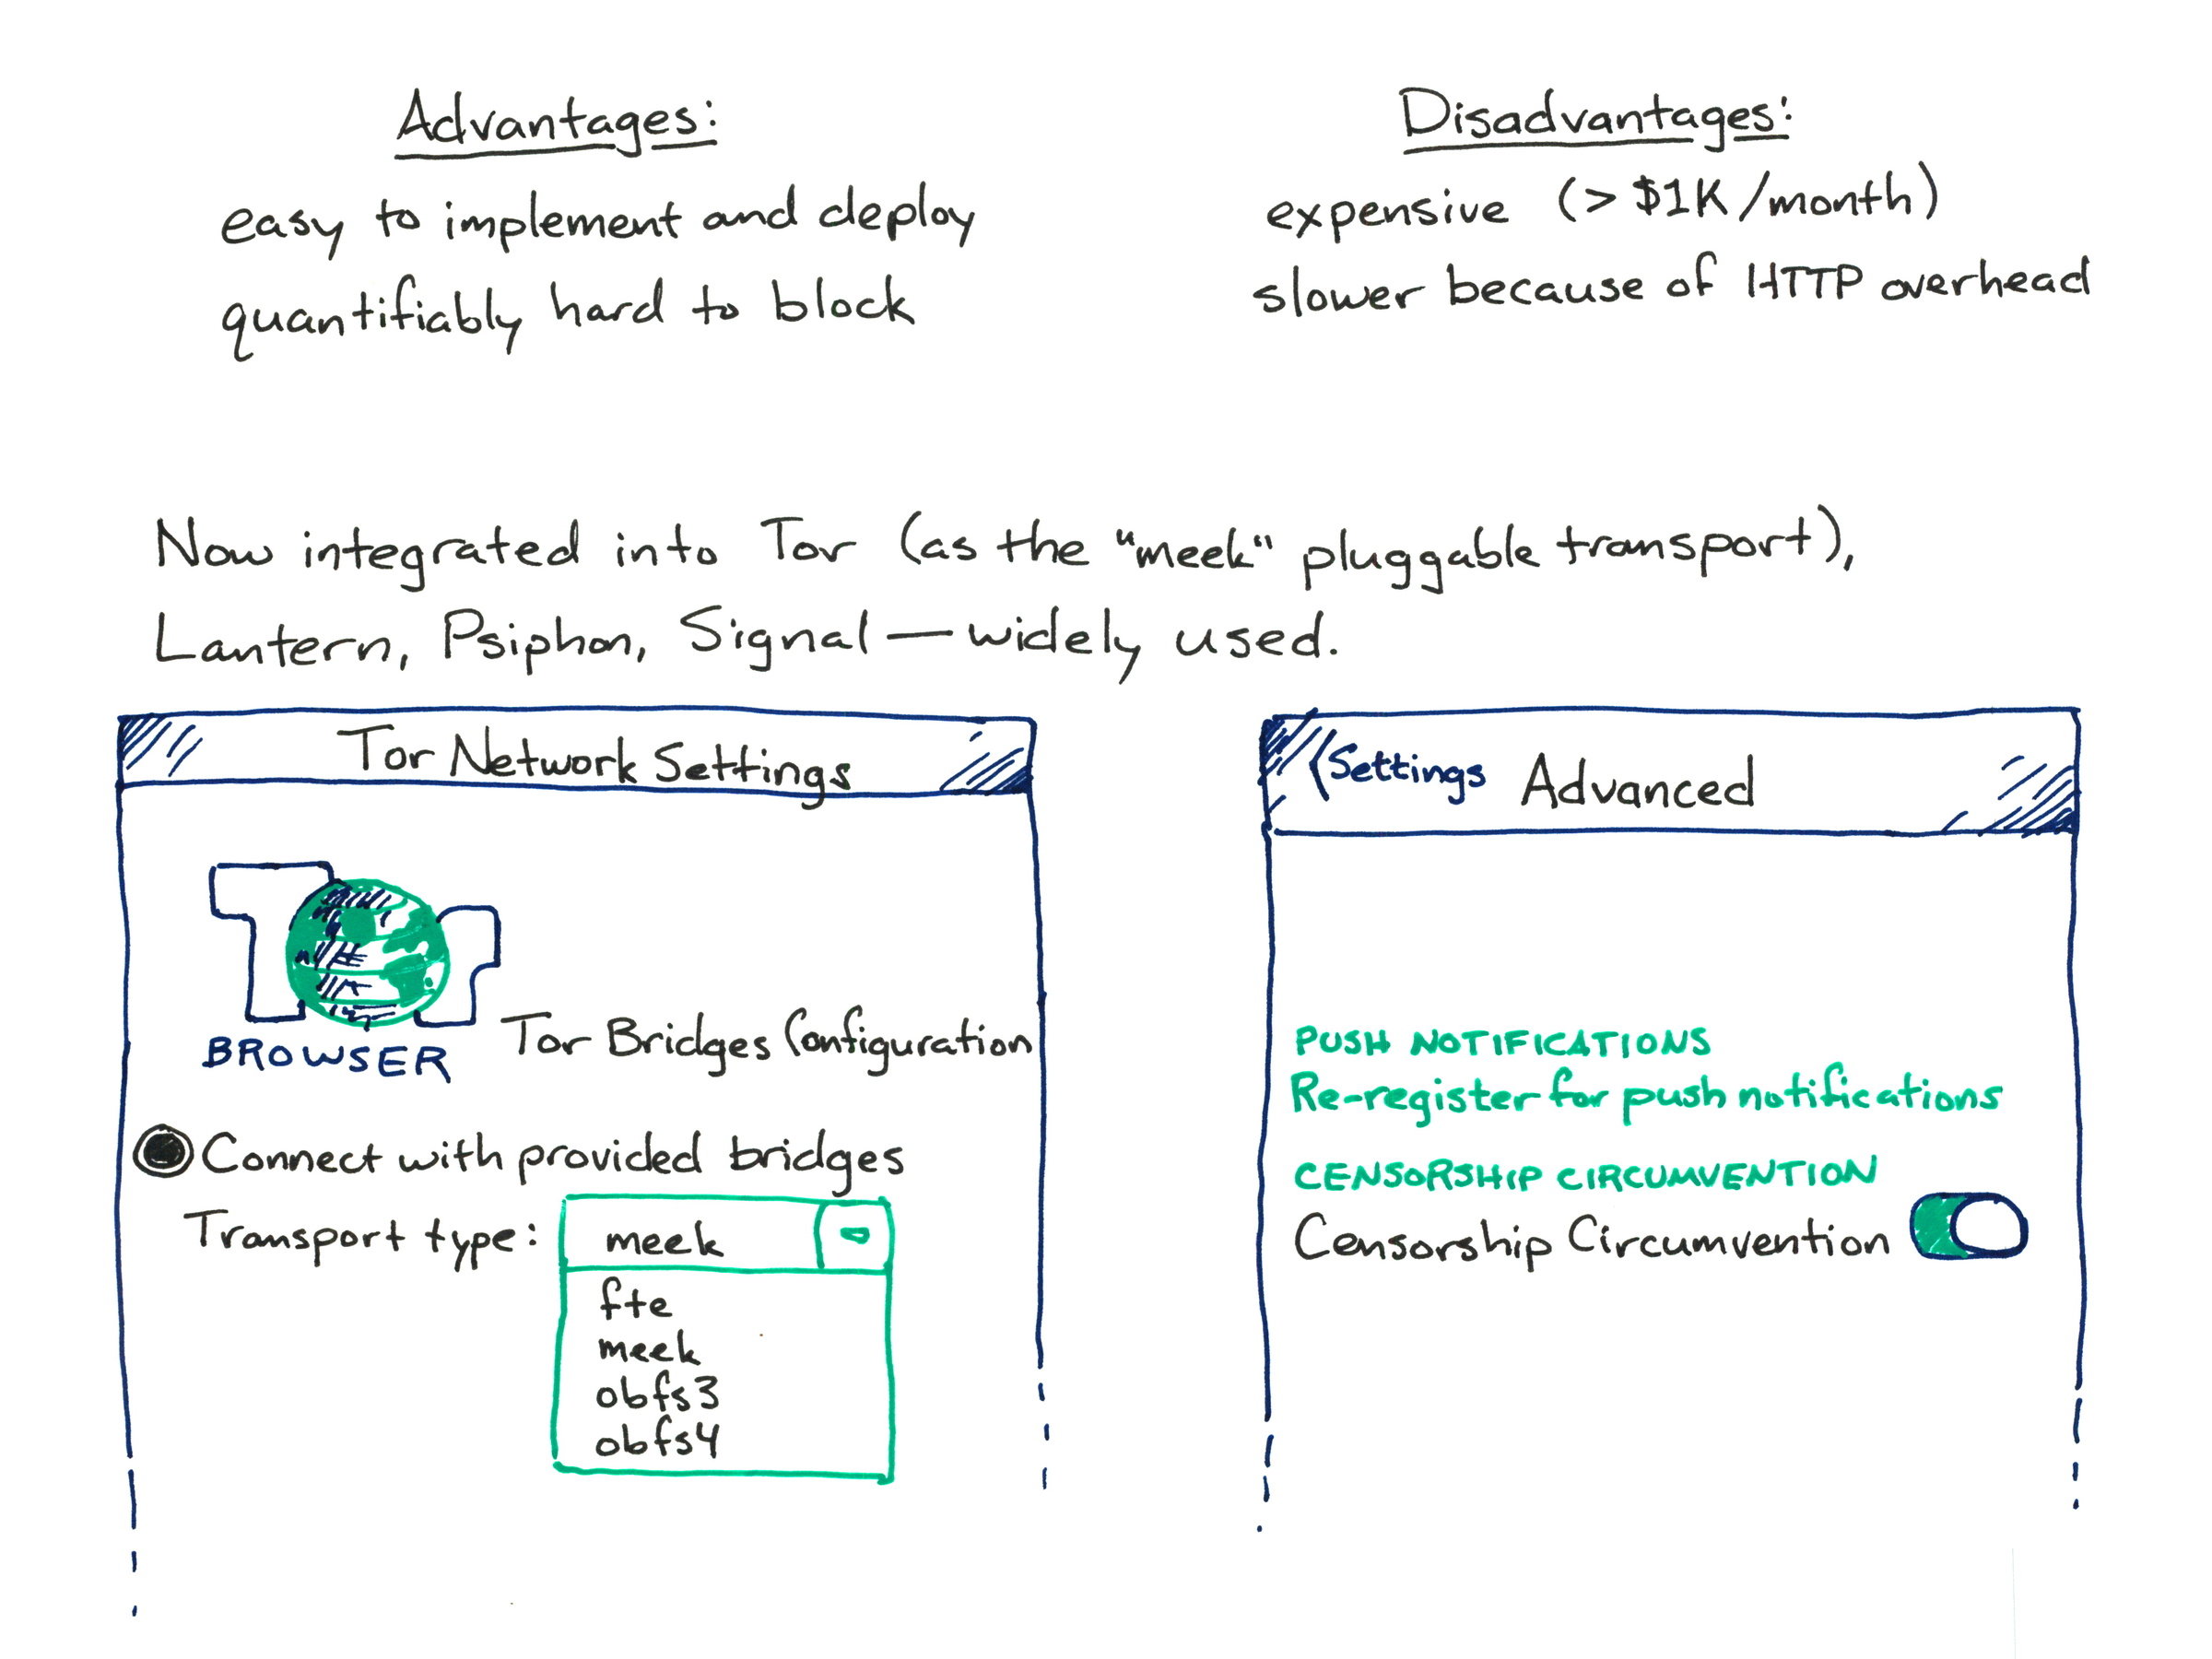 Advantages:
easy to implement and deploy
quantifiably hard to block
Disadvantages:
expensive (> $1K/month)
slower because of HTTP overhead
Now integrated into Tor (as the "meek" pluggable transport),
Lantern, Psiphon, Signal—widely used.
Tor Network Settings
Tor
BROWSER
Tor Bridges Configuration
Connect with provided bridges
Transport type:
meek
fte
meek
obfs3
obfs4
Settings Advanced
PUSH NOTIFICATIONS
Re-register for push notifications
CENSORSHIP CIRCUMVENTION
Censorship Circumvention